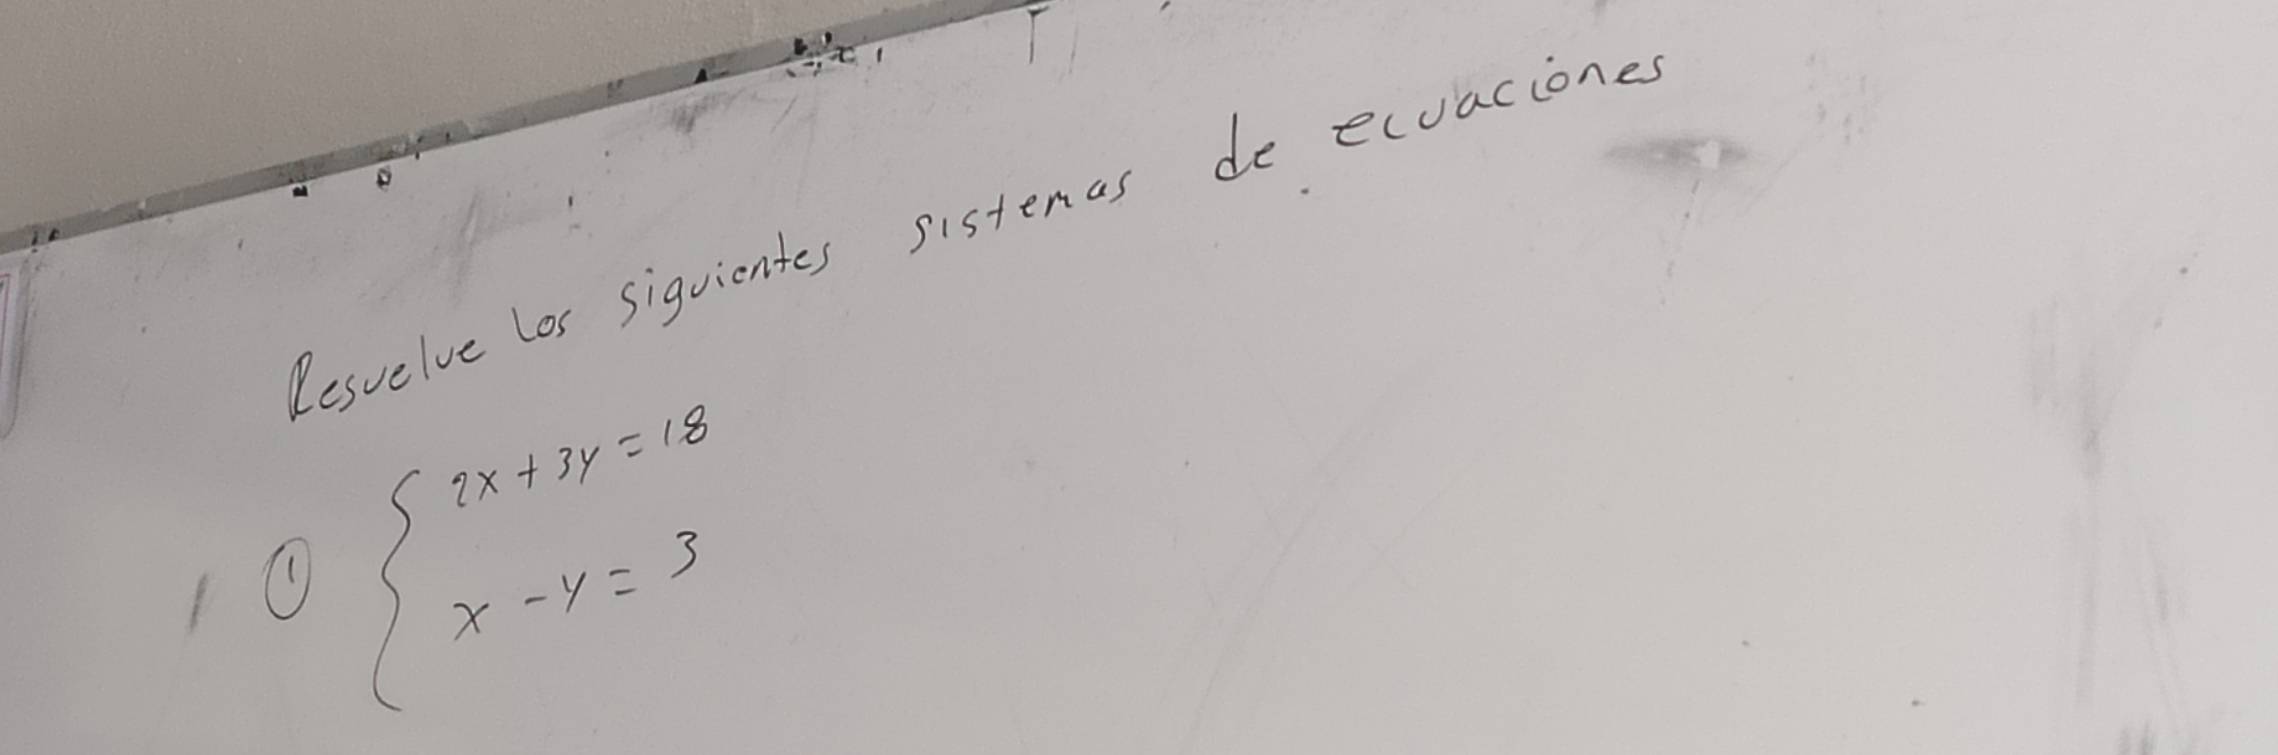 Resuelve los siguientes sistemas de ecuaciones
① { 2x + 3y = 18
x - y = 3